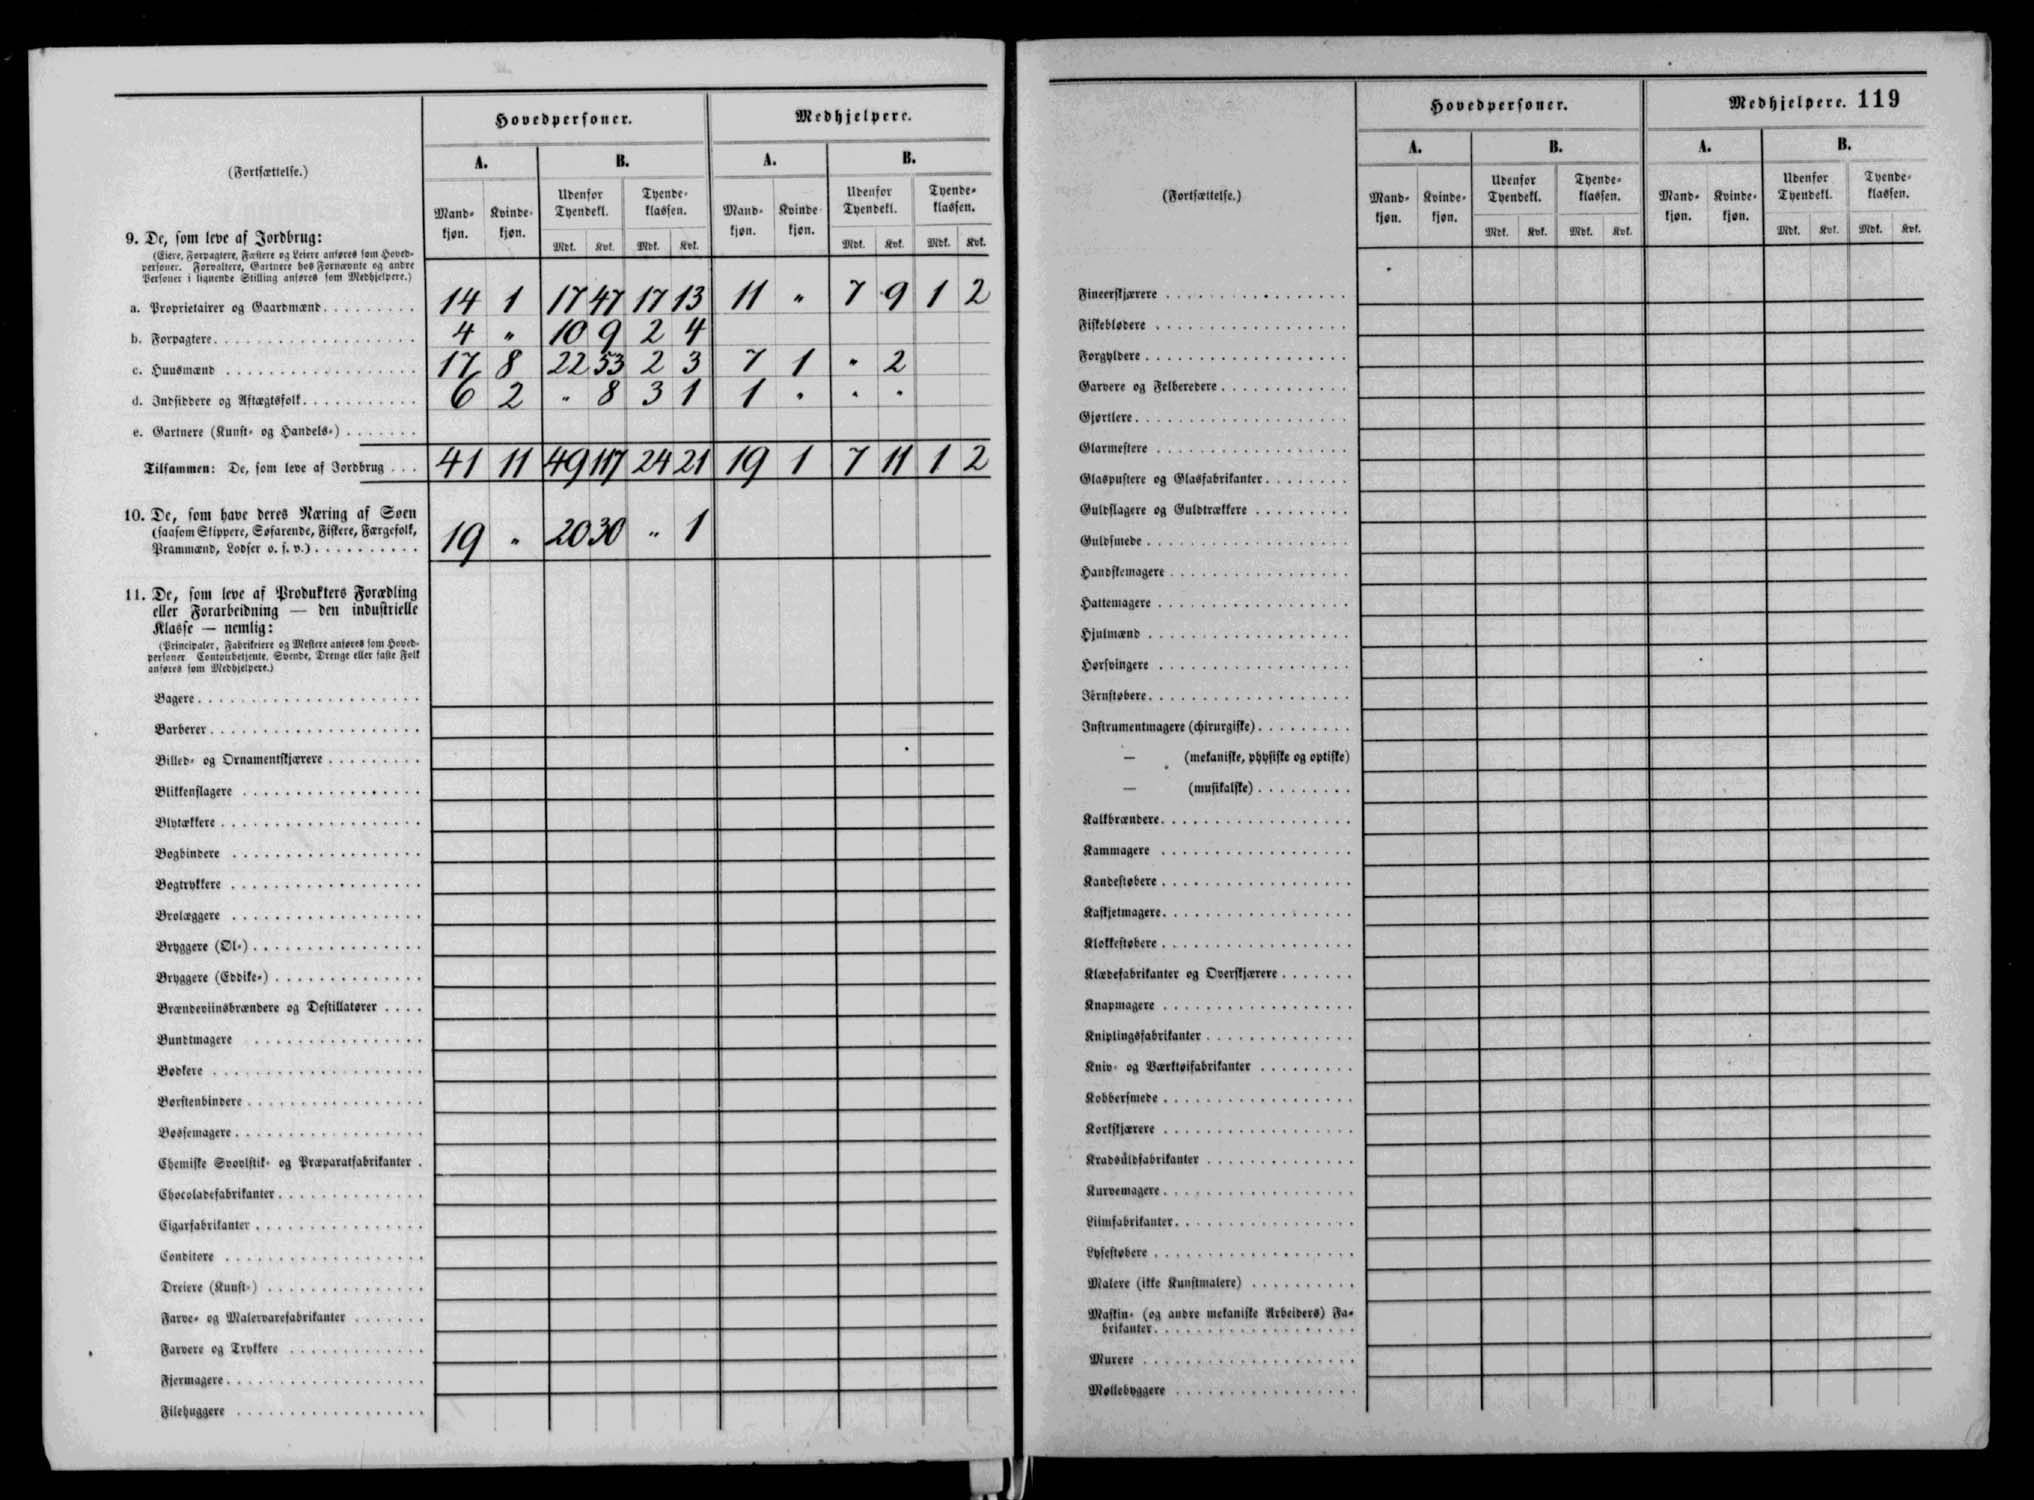 (Fortsættelse.)
Hovedpersoner. Medhjelpere.
A. B. A. B.
Udenfor Tyende- Udenfor Tyende-
Mand- Kvinde- Tyendekl. klassen. Mand- Kvinde- Tyendekl. klassen.
kjøn. kjøn. Mdk. Kvk. Mdk. Kvk. kjøn. kjøn. Mdk. Kvk. Mdk. Kvk.
9. De, som leve af Jordbrug:
(Eiere, Forpagtere, Fæstere og Leiere anføres som Hoved-
personer. Forvaltere, Gartnere hos Fornævnte og andre
Personer i lignende Stilling anføres som Medhjelpere.)
a. Proprietairer og Gaardmænd 14 1 17 47 17 13 11 " 7 9 1 2
b. Forpagtere 4 " 10 9 2 4
c. Huusmænd 17 8 22 53 2 3 7 1 " 2
d. Indsiddere og Aftægtsfolk 6 2 " 8 3 1 1 " " "
e. Gartnere (Kunst- og Handels-)
Tilsammen: De, som leve af Jordbrug 41 11 49 117 24 21 19 1 7 11 1 2
10. De, som have deres Næring af Soen
(saasom Skippere, Søfarende, Fiskere, Færgefolk,
Prammænd, Lodser o. s. v.) 19 " 20 30 " 1
11. De, som leve af Produkters Forædling
eller Forarbeidning — den industrielle
Klasse — nemlig:
(Principaler, Fabrikeiere og Mestere anføres som Hoved-
personer. Contoirbetjente, Svende, Drenge eller faste Folk
anføres som Medhjelpere.)
Bagere
Barberer
Billed- og Ornamentskjærere
Blikkenslagere
Blytækkere
Bogbindere
Bogtrykkere
Brolæggere
Bryggere (Øl-)
Bryggere (Eddike-)
Brændeviinsbrændere og Destillatører
Bundtmagere
Bødkere
Børstenbindere
Bøssemagere
Chemiske Svovlstik- og Præparatfabrikanter
Chocoladefabrikanter
Cigarfabrikanter
Conditore
Dreiere (Kunst-)
Farve- og Malervarefabrikanter
Farvere og Trykkere
Fjermagere
Filehuggere
(Fortsættelse.)
Hovedpersoner. Medhjelpere. 119
A. B. A. B.
Udenfor Tyende- Udenfor Tyende-
Mand- Kvinde- Tyendekl. klassen. Mand- Kvinde- Tyendekl. klassen.
kjøn. kjøn. Mdk. Kvk. Mdk. Kvk. kjøn. kjøn. Mdk. Kvk. Mdk. Kvk.
Fineerskjærere
Fiskeblødere
Forgyldere
Garvere og Felberedere
Gjørtlere
Glarmestere
Glaspustere og Glasfabrikanter
Guldslagere og Guldtrækkere
Guldsmede
Handskemagere
Hattemagere
Hjulmænd
Hørsvingere
Jernstøbere
Instrumentmagere (chirurgiske)
— (mekaniske, physiske og optiske)
— (musikalske)
Kalkbrændere
Kammagere
Kandestøbere
Kaskjetmagere
Klokkestøbere
Klædefabrikanter og Overskjærere
Knapmagere
Kniplingsfabrikanter
Kniv- og Værktøifabrikanter
Kobbersmede
Korkskjærere
Kradsuldfabrikanter
Kurvemagere
Liimfabrikanter
Lysestøbere
Malere (ikke Kunstmalere)
Maskin- (og andre mekaniske Arbeiders) Fa-
brikanter
Murere
Møllebyggere